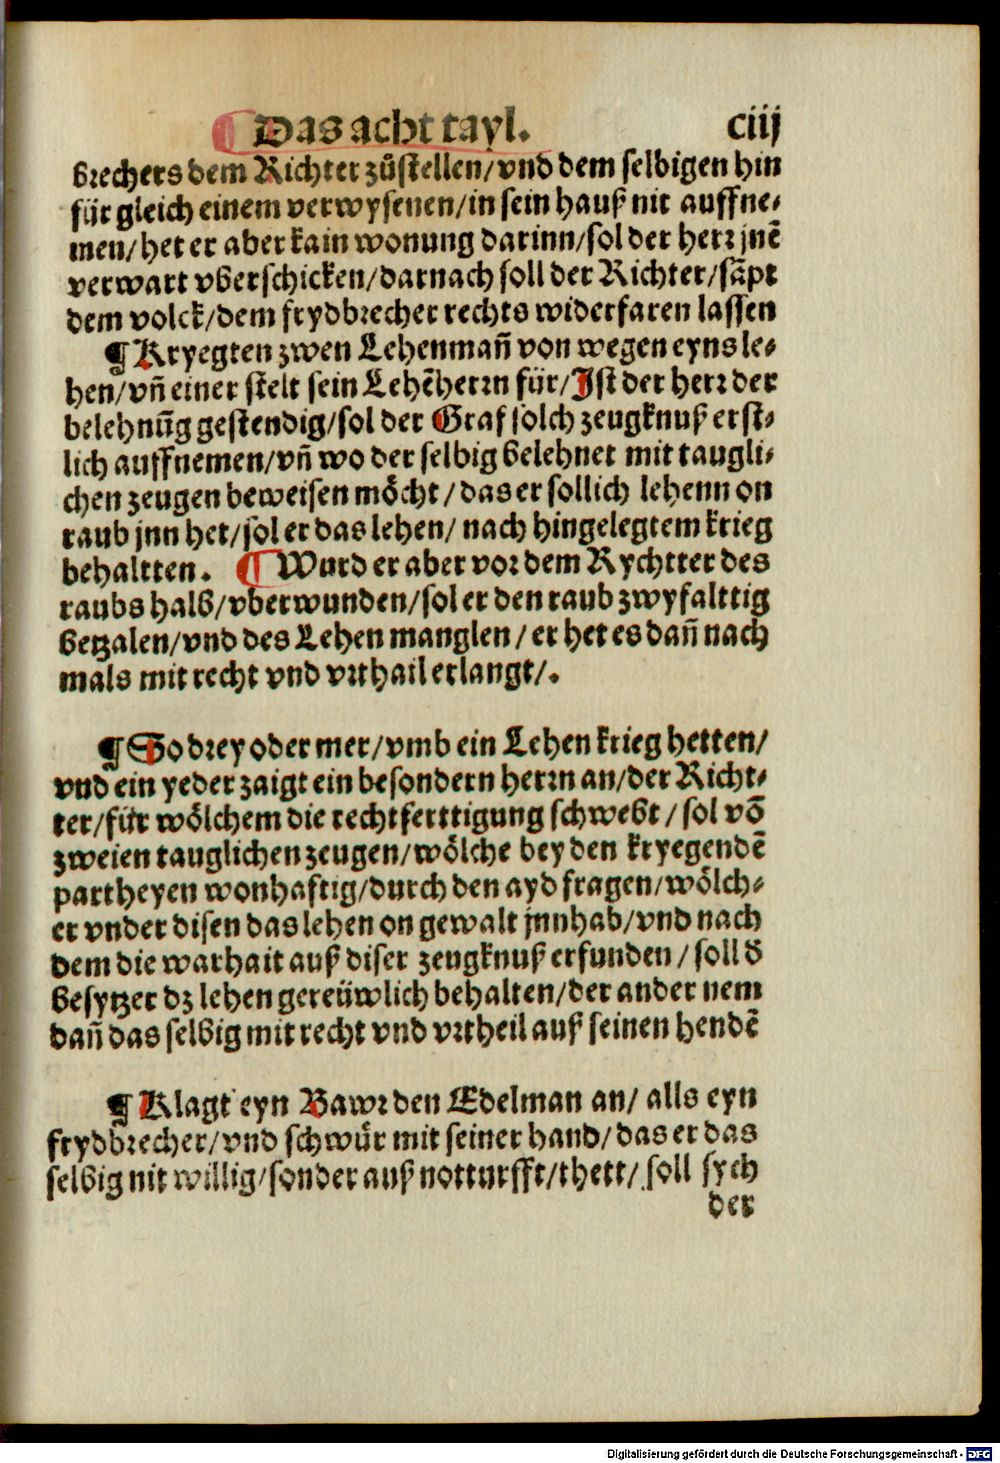 ¶ Das acht tayl. ciij
brechers dem Richter zůstellen/vnd dem selbigen hin
für gleich einem verwysenen/in sein hauß nit auffne-
men/het er aber kain wonung darinn/sol der herr jnē
verwart vberschicken/darnach soll der Richter/sāpt
dem volck/dem frydbrecher rechts widerfaren lassen
¶ Kryegten zwen Lehenmañ von wegen eyns le-
hen/vñ einer stelt sein Lehēherrn für/Ist der herr der
belehnūg gestendig/sol der Graf solch zeugknuß erst-
lich auffnemen/vñ wo der selbig belehnet mit taugli-
chen zeugen beweisen möcht/das er sollich lehenn on
raub jnn het/sol er das lehen/nach hingelegtem krieg
behaltten. ¶ Wurd er aber vor dem Rychtter des
raubs halb/vberwunden/sol er den raub zwyfalttig
betzalen/vnd des Lehen manglen/er het es dañ nach
mals mit recht vnd vrthail erlangt/.
¶ So drey oder mer/vmb ein Lehen krieg hetten/
vnd ein yeder zaigt ein besondern herrn an/der Richt-
ter/für wölchem die rechtferttigung schwebt/sol vō
zweien tauglichen zeugen/wölche bey den kryegendē
partheyen wonhaftig/durch den ayd fragen/wölch-
er vnder disen das lehen on gewalt jnnhab/vnd nach
dem die warhait auß diser zeugknuß erfunden/soll d̕
besytzer dz lehen gereüwlich behalten/der ander nem
dañ das selbig mit recht vnd vrtheil auß seinen hendē
¶ Klagt eyn Bawr den Edelman an/alls eyn
frydbrecher/vnd schwůr mit seiner hand/das er das
selbig nit willig/sonder auß notturfft/thett/soll sych
der
Digitalisierung gefördert durch die Deutsche Forschungsgemeinschaft - DFG